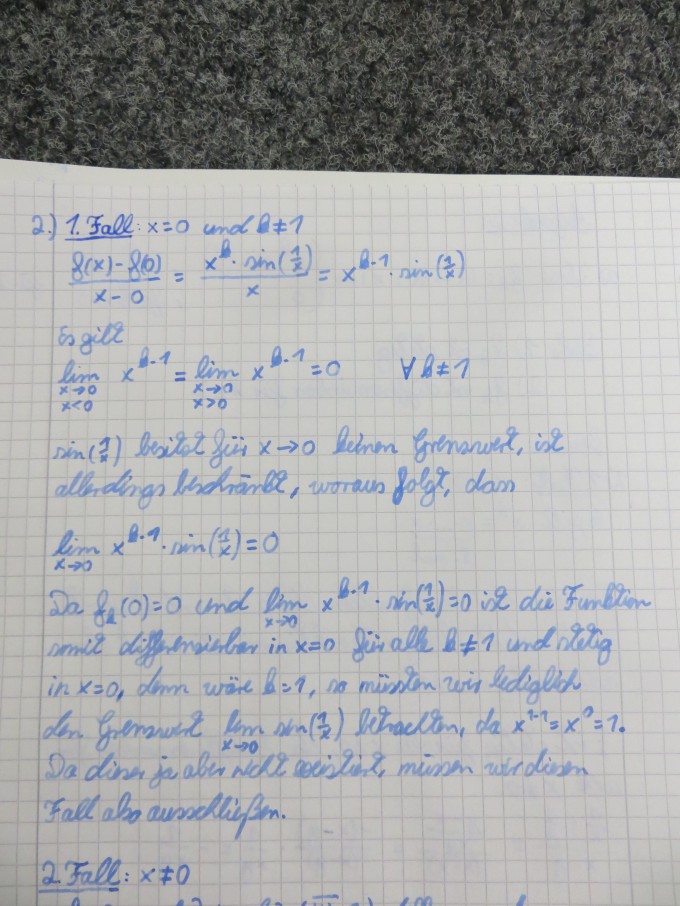 2.) 1. Fall: x=0 und k≠1
(f(x)-f(0))/(x-0) = (x^k · sin(1/x))/x = x^(k-1) · sin(1/x)
Es gilt
lim x→0 x<0 x^(k-1) = lim x→0 x>0 x^(k-1) = 0 ∀ k≠1
sin(1/x) besitzt für x→0 keinen Grenzwert, ist
allerdings beschränkt, woraus folgt, dass
lim x→0 x^(k-1) · sin(1/x) = 0
Da f_k(0)=0 und lim x→0 x^(k-1) · sin(1/x)=0 ist die Funktion
somit differenzierbar in x=0 für alle k≠1 und stetig
in x=0, denn wäre k=1, so müssten wir lediglich
den Grenzwert lim x→0 sin(1/x) betrachten, da x^(1-1)=x^0=1.
Da dieser ja aber nicht existiert, müssen wir diesen
Fall also ausschließen.
2. Fall: x≠0